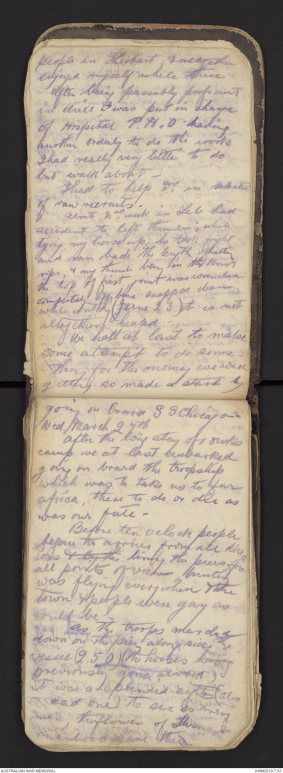 people in Hobart, & altogether
enjoyed myself while there
After being passably proficient
in drill I was put in charge
of Hospital P.H.O having
another orderly to do the work
I had really very little to do
but walk about -
I had to help Dr in selection
of raw recruits.
About 2nd week in Feb had
accident to left thumb, while
tying my horse up, he took fright
and ran back the length of
rope, & my thumb being in the
the top of first joint was
completely snapped
while (June 23) it is not
altogether healed
We had at last to make
some attempt to do some
thing for the money we were
getting so made a start by
going on board S S Chicago on
Wed March 27th
After the long stay of
camp we at last embarked
going on board the troopship
which was to take us to
africa, there to do or die as
was our fate -
Before ten oclock people
began to arrive from all dir
lining the piers,
all points of view, bunting
was flying everywhere & the
town & people were gay as
could be.
As the troops marched
down on the pier alongside the
vessel (250) (the horses having
previously gone aboard)
it was a splendid sight (also
a sad one) to see so many
men, the flower of
manhood leave their
AUSTRALIAN WAR MEMORIAL